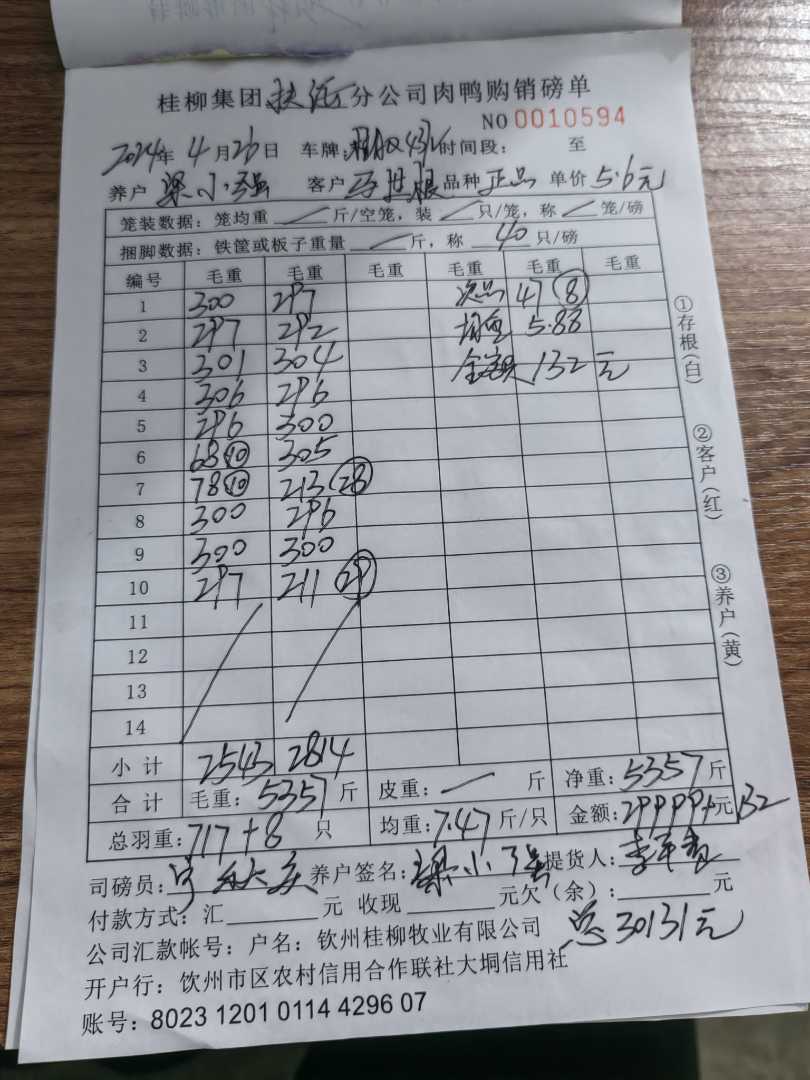 桂柳集团 分公司肉鸭购销磅单
NO 0010594
2024年 4月26日 车牌: 时间段: 至
养户 梁小强 客户 马世根 品种 正品 单价 5.6元
笼装数据: 笼均重 / 斤/空笼, 装 / 只/笼, 称 / 笼/磅
捆脚数据: 铁筐或板子重量 / 斤, 称 40 只/磅
编号 毛重 毛重 毛重 毛重 毛重 毛重
1 300 297 次品 47 ⑧
2 297 292 均重 5.88
3 301 304 金额 132元
4 306 296
5 296 300
6 68 ⑩ 305
7 78 ⑩ 213 ㉘
8 300 296
9 300 300
10 297 211 ㉙
11
12
13
14
小计 2543 2814
合计 毛重: 5357 斤 皮重: 斤 净重: 5357 斤
总羽重: 717+8 只 均重: 7.47 斤/只 金额: 29999+元132
司磅员: 养户签名: 梁小强 提货人:
付款方式: 汇 元 收现 元欠(余): 元
总30131元
公司汇款帐号: 户名: 钦州桂柳牧业有限公司
开户行: 钦州市区农村信用合作联社大垌信用社
账号: 8023 1201 0114 4296 07
①存根(白)
②客户(红)
③养户(黄)